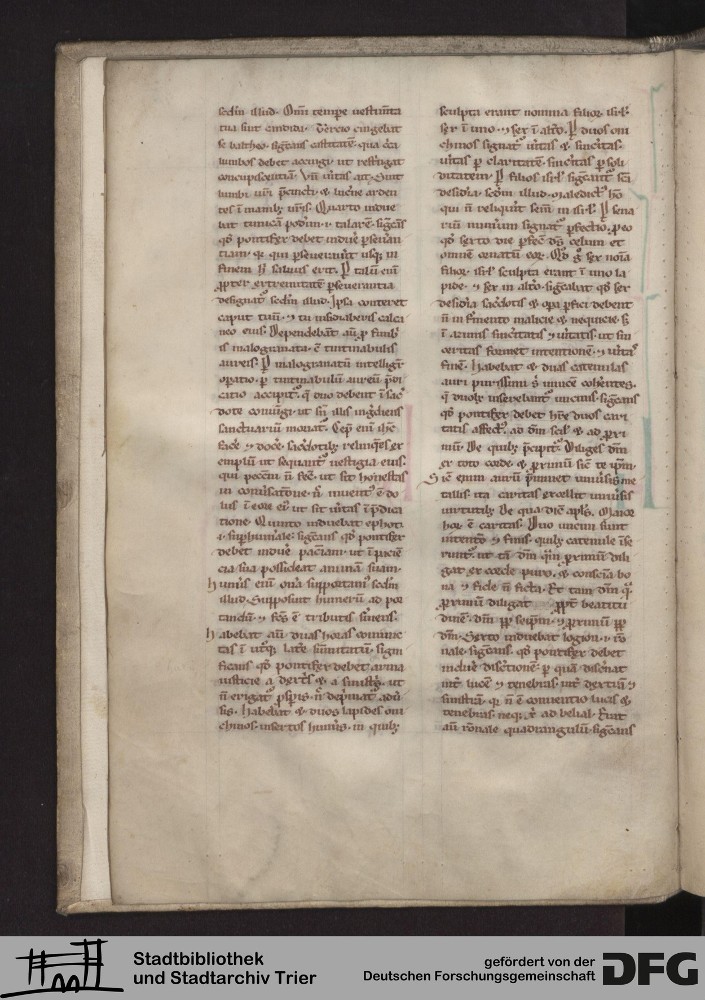 scdm illud. Omi tempe uestimta
tua sint candida. Tercio cingebat
se baltheo. sigcans castitate. qua
lumbos debet accingi. ut restigat
concupiscentia. Vn uitas ait. Sint
lumbi uri pcincti. & lucne arden
tes i manib; uris. Quarto indue
bat tunica podim .i. talare. sigcas
qd pontifex debet indue pseuan
tiam. qui pseuauit usq; in
finem h saluus erit. P talu eni
propter extremitate pseuerantia
designat scdm illud. Ipsa conteret
caput tuu. & tu insidiaberis calca
neo eius. Dependebat au p fimb
is malogranata. c tintinabulis
aureis. P malogranatu intelligit
opatio. p tintinabulu aureu pdi
catio accipit. q duo debent i sac
dote coniungi. ut sn illis ingdiens
sanctuariu moriat. Cep eni ihc
face & doce. sacdotib; relinqes ex
emplu ut sequant uestigia eius.
qui peccm n fec. ut sit honestas
in conusatone. n inuent e do
lus i ore ei ut sit uitas i pdica
tione. Quinto induebat ephot.
.i. suphumale. sigcans qd pontifex
debet indue pacian. ut i pacie
cia sua possideat animam suam.
humis eni ona supportant scdm
illud. Supposuit humeru ad por
tandu. & fcs e tributis suies.
habebat au duas horas coniunc
tas i utq; late summitatu. signi
ficans qd pontifex debet arma
iusticie a dextis & a sinistis. ut
n erigat pspis. n depmat adu
sis. Habebat & duos lapides oni
chinos. insertos humis. in quib;
sculpta erant nomina filior. isrl.
sex i uno. & sex i alto. P duos oni
chinos signat uitas & sincitas.
uitas p claritate. sincitas p soli
ditatem. P filios isrl. sigcant sci
desidia. scdm illud. Maledict ho
qui n reliquit sem in isrl. P sena
riu numum signat pfectio. p eo
qd sexto die pfec ds celum et
omne ornatu eor. Qd g sex noia
filior. isrl sculpta erant i uno la
pide. & sex in alto. sigcabat qd sex
desidia sacdotis & opa pfici debent
n in fmento malicie & nequicie. s;
i azimis sincitatis & uitatis. ut sin
ceritas formet intentione. & uitas
fine. Habebat & duas catenulas
auri purissimi s inuice coherentes.
q duob; inserebant uncinis. sigcans
qd pontifex debet hre duos cari
tatis affect. ad dm scil & ad pxi
mu. De quib; pcipit. Diliges dm
ex toto corde. & pximu sic te ipm.
Sic enim auru pminet uniusis me
tallis. ita caritas excellit uniusis
uirtutib;. De qua dic apls. Maior
hor e caritas. Duo uncini sunt
intento & finis. quib; catenule ise
runt. ut ta dm qm pximu dili
gat ex corde puro. & conscia bo
na & fide n ficta. Et tam dm q
pximu diligat ppt beatitu
dine. dm pp seipm. & pximu pp
dm. Sexto induebat logion .i. ro
nale. sigcans. qd pontifex debet
indue discretione. p qua discnat
int luce & tenebras. int dextia &
sinistra. q; n e conuentio lucis &
tenebras. neq; x ad belial. Erat
au ronale quadrangulu. sigcans
Stadtbibliothek
und Stadtarchiv Trier
gefördert von der
Deutschen Forschungsgemeinschaft
DFG